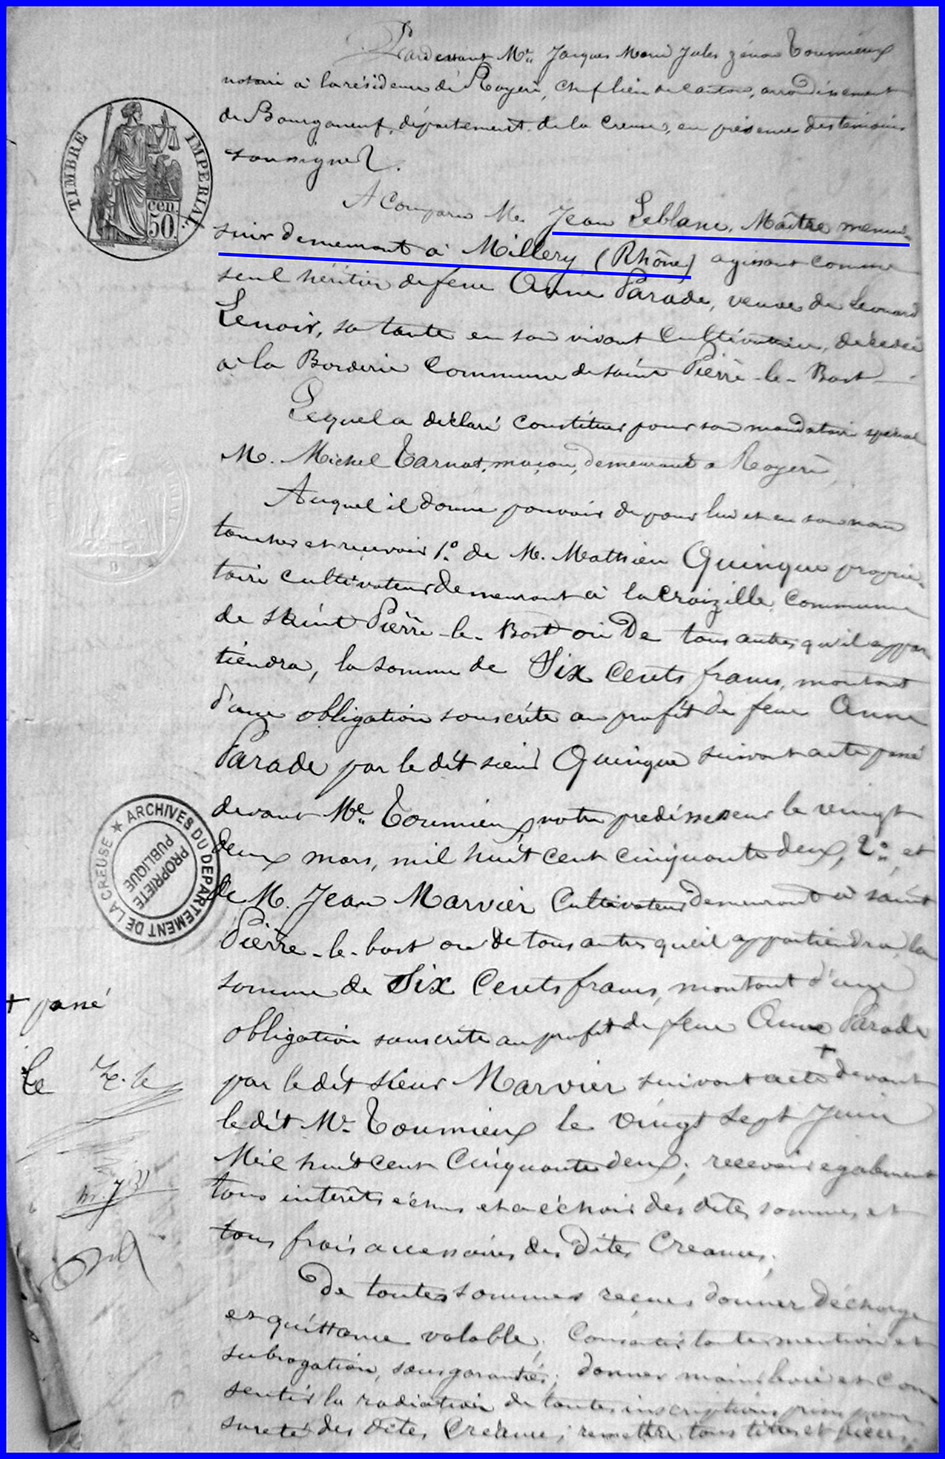 Pardevant Me. Jacques Marie Jules Zénon Toumieux
notaire à la résidence de Royère, chef lieu de canton, arrondissement
de Bourganeuf, département de la Creuse, en présence des témoins
soussignés.
A Comparu M. Jean Leblanc, Maître menui-
sier demeurant à Millery (Rhône) agissant comme
seul héritier de feue Anne Parade, veuve de Léonard
Lenoir, sa tante en son vivant Cultivatrice, décédée
à la Borderie Commune de saint Pierre-le-Bost
Lequel a déclaré constituer pour son mandataire spécial
M. Michel Tarnat, maçon, demeurant à Royère
Auquel il donne pouvoir de pour lui et en son nom
toucher et recevoir 1.o de M. Mathieu Quinque proprié-
taire cultivateur demeurant à la Croizille, commune
de Saint Pierre-le-Bost ou De tous autres qu'il appar
tiendra, la somme de Six Cents francs, montant
d'une obligation souscrite au profit de feue Anne
Parade par le dit sieur Quinque suivant acte passé
devant Me. Toumieux, notre prédécesseur le vingt
deux mars, mil huit cent cinquante deux, 2.o et
de M. Jean Marvier Cultivateur demeurant à saint
Pierre-le-bost ou de tous autres qu'il appartiendra, la
somme de Six Cents francs, montant d'une
obligation souscrite au profit de feue Anne Parade
par le dit sieur Marvier suivant acte + devant
le dit Me. Toumieux le vingt sept Juin
Mil huit cent Cinquante deux; recevoir également
tous intérêts échus et à échoir des dites sommes et
tous frais accessoires des Dites Créances.
De toutes sommes reçues donner décharge
et quittance valable; Consentir toutes mention et
subrogation, sans garantie; donner mainlevée et con
sentir la radiation de toutes inscriptions prises pour
sureté des dites Créances; remettre tous titres et pièces;
+ passé
TIMBRE IMPÉRIAL
50 cen.
ARCHIVES DU DEPARTEMENT DE LA CREUSE
PROPRIETE PUBLIQUE